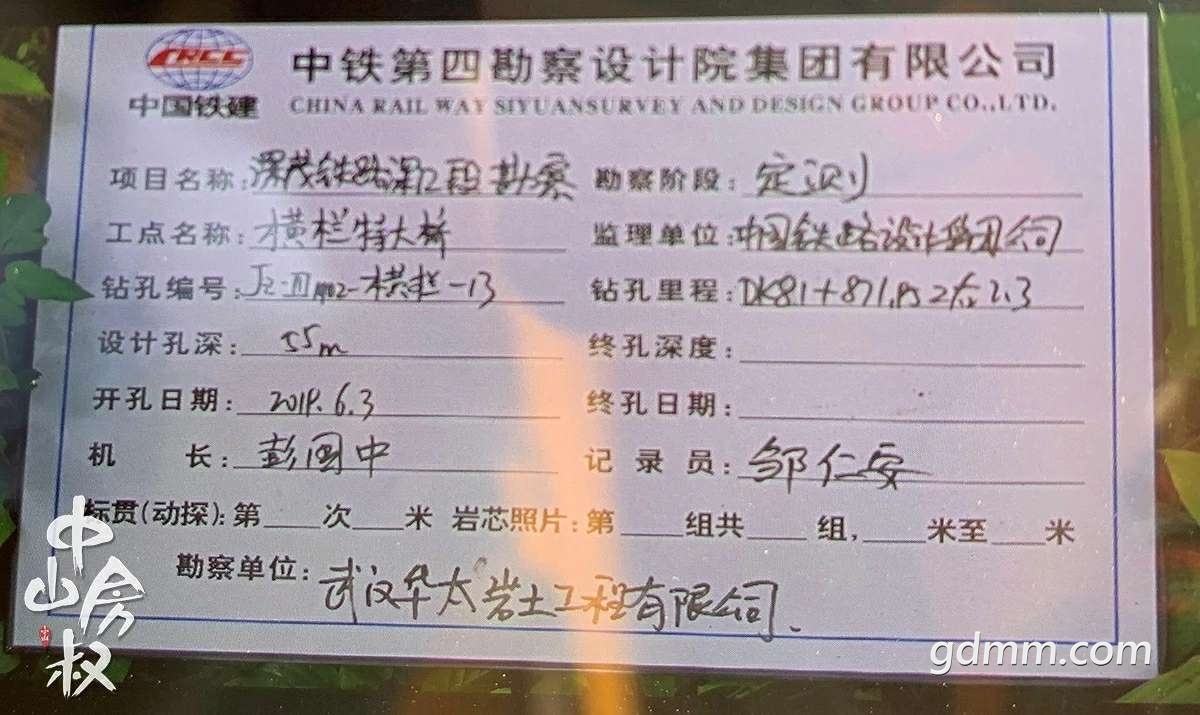 CRCC
中国铁建
中铁第四勘察设计院集团有限公司
CHINA RAIL WAY SIYUANSURVEY AND DESIGN GROUP CO.,LTD.
项目名称: 深茂铁路深江段勘察 勘察阶段: 定测
工点名称: 横栏特大桥 监理单位: 中国铁路设计集团公司
钻孔编号: 横栏-13 钻孔里程: DK81+871
设计孔深: 55m 终孔深度:
开孔日期: 2019.6.3 终孔日期:
机 长: 彭国中 记录员: 邹仁安
标贯(动探): 第 次 米 岩芯照片: 第 组共 组, 米至 米
勘察单位: 武汉华太岩土工程有限公司
中山房叔
gdmm.com